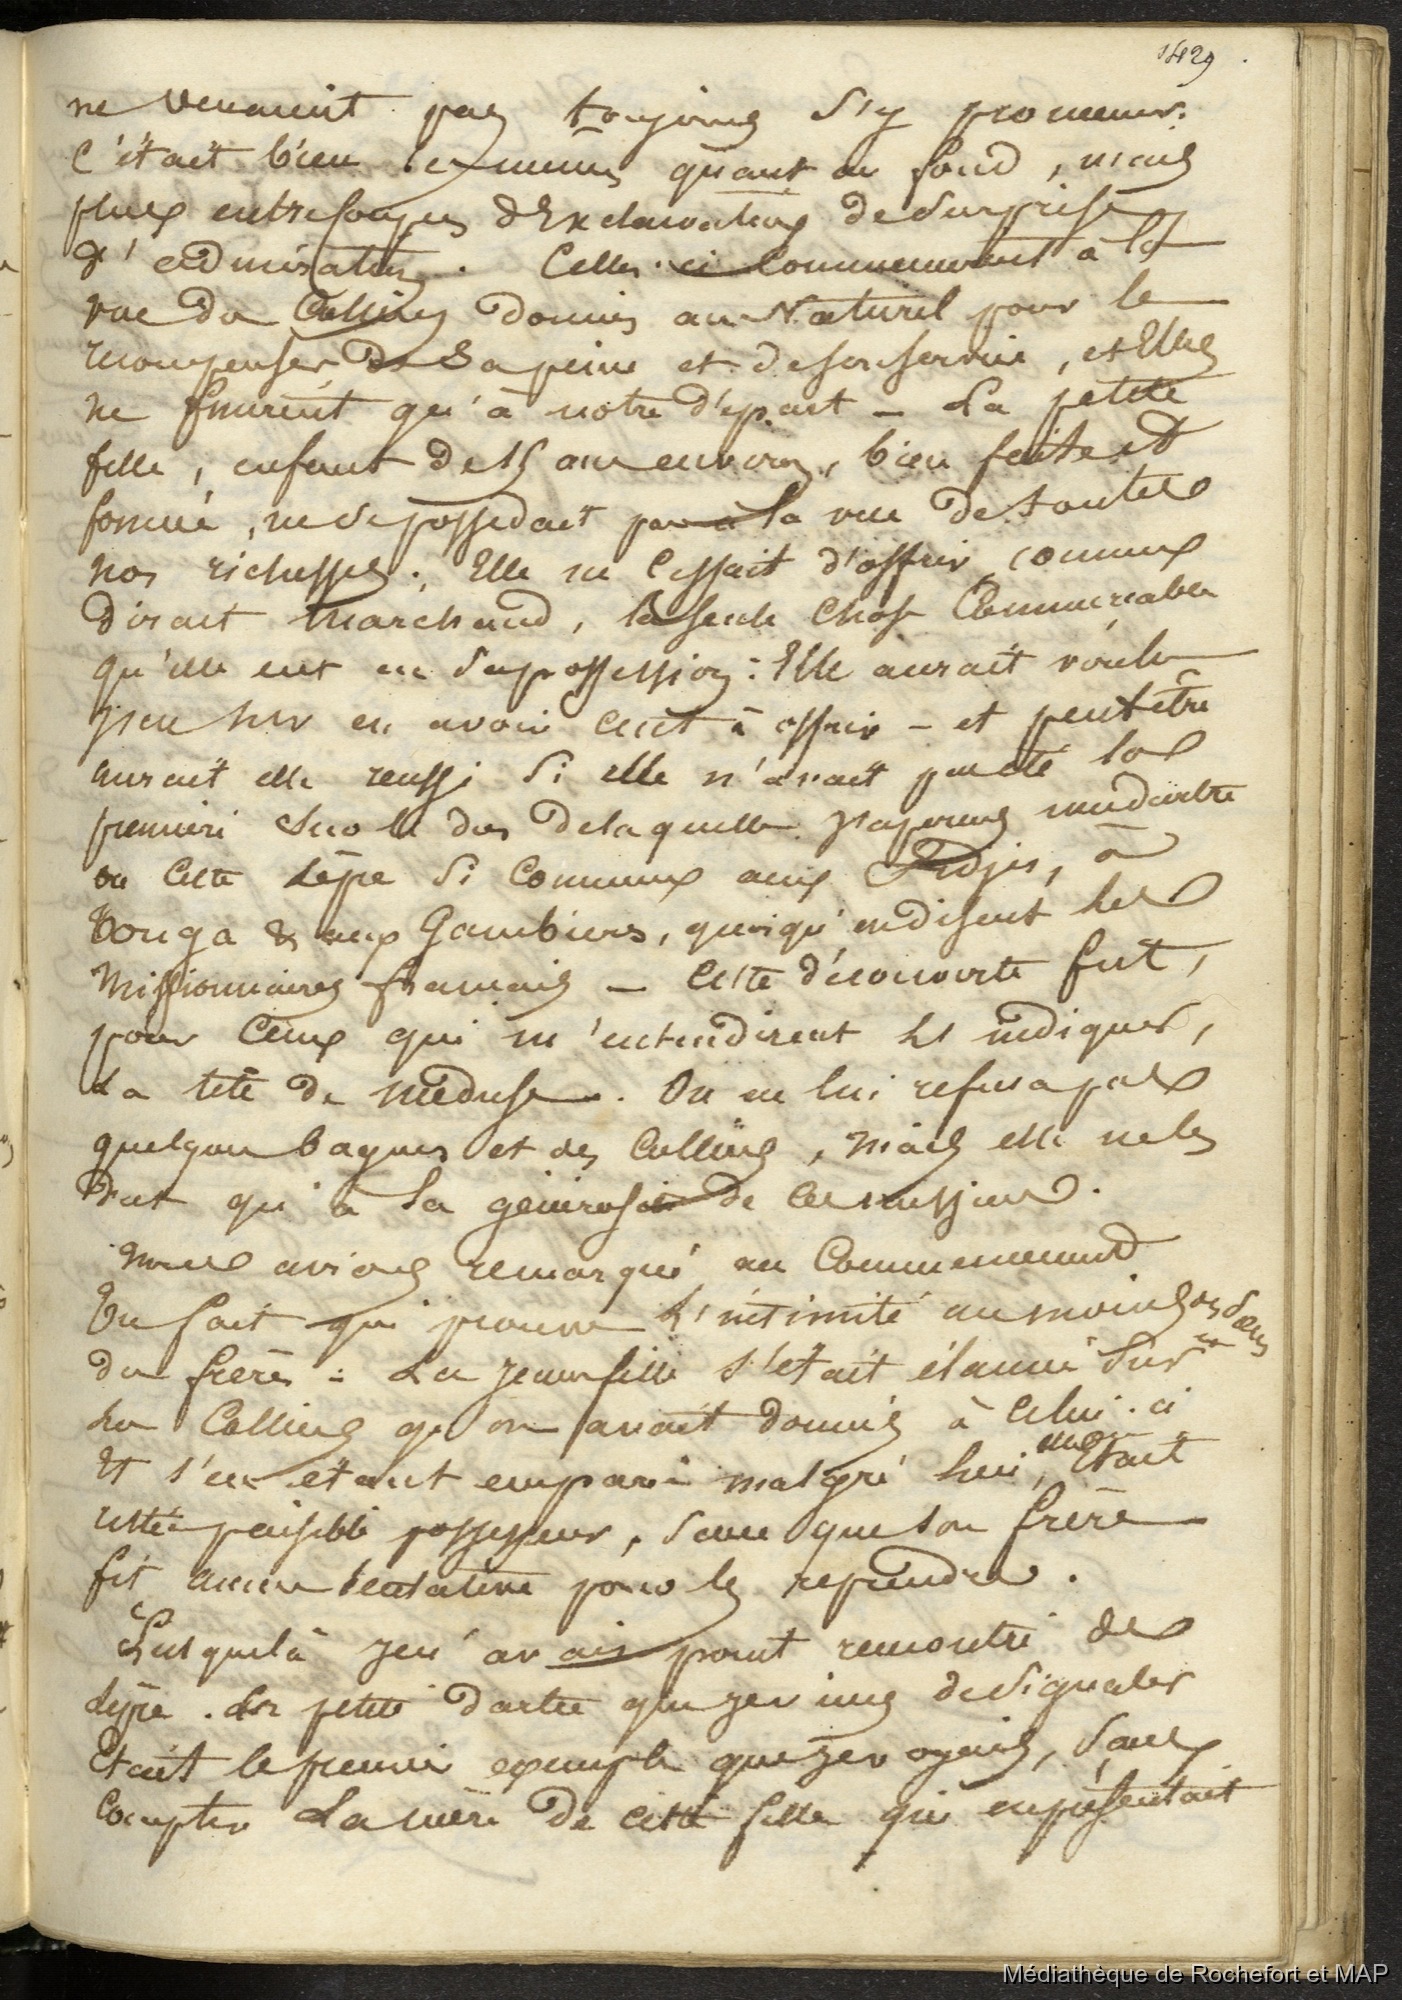 1429
ne venaient pas toujours s'y promener.
C'était bien les mêmes quant au fond, mais
plus entrecoupés d'Exclamations de Surprise
d'admiration. Celles-ci commencèrent à la
vue du Collier donnés au Naturel pour le
recompenser de Sa peine et de son service, et Elles
ne finirent qu'à notre départ — La petite
fille, enfant de 15 ans environ, bien faite et
formée, ne se possedait pas à la vue de toutes
nos richesses; Elle ne Cessait d'offrir comme
disait marchand, la seule Chose Commerçable
qu'elle eut en Sa possession: Elle aurait voulu
en avoir cent à offrir — et peut être
aurait elle reussi Si elle n'avait pas été la
premiere Sur le dos de laquelle j'aperçus une dartre
ou Cette lèpre Si Commune aux Fidjis, à
Tonga & aux Gambiers, quoiqu'en disent les
Missionnaires français — Cette découverte fut,
pour Ceux qui m'entendirent la indiquer,
La tête de Méduse. On ne lui refusa pas
quelques bagues et des Colliers, mais elle ne les
dut qu'à la générosité de Ces messieurs.
Nous avions remarqué, au Commencement
Un fait qui prouve l'intimité au moins des Sœurs
du frère: La jeune fille S'était élancée Sur
les Colliers qu'on avait donnés à Celui-ci
Et s'en étant emparé malgré lui, Etait
restée paisible possesseur, Sans que son frère
fit aucune tentative pour les reprendre.
Jusque là je n'avais point rencontré de
lèpre. La petite dartre que je viens de Signaler
Etait le premier exemple que je voyais, Sans
Compter La mère de cette fille qui en présentait
Médiathèque de Rochefort et MAP